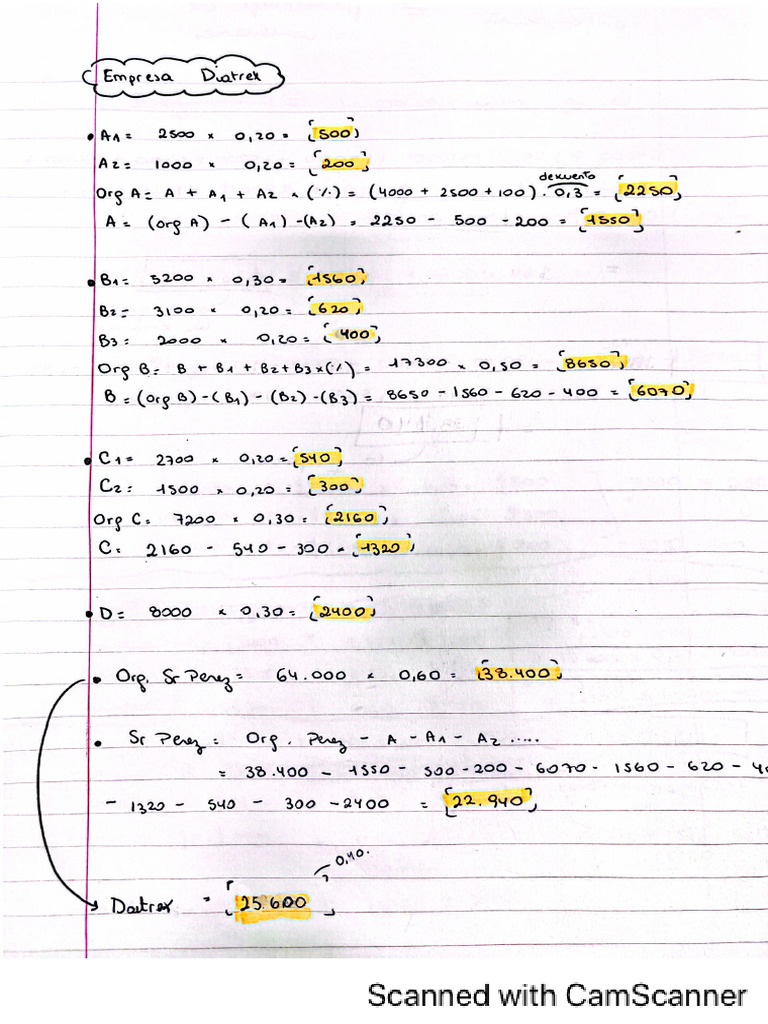 Empresa Diatrex
• A1 = 2500 × 0,20 = [500]
A2 = 1000 × 0,20 = [200]
descuento
Org A = A + A1 + A2 × (%) = (4000 + 2500 + 100) · 0,3 = [2250]
A = (org A) - (A1) - (A2) = 2250 - 500 - 200 = [1550]
• B1 = 5200 × 0,30 = [1560]
B2 = 3100 × 0,20 = [620]
B3 = 2000 × 0,20 = [400]
Org B = B + B1 + B2 + B3 × (%) = 17300 × 0,50 = [8650]
B = (org B) - (B1) - (B2) - (B3) = 8650 - 1560 - 620 - 400 = [6070]
• C1 = 2700 × 0,20 = [540]
C2 = 1500 × 0,20 = [300]
Org C = 7200 × 0,30 = [2160]
C = 2160 - 540 - 300 = [1320]
• D = 8000 × 0,30 = [2400]
• Org. Sr Perez = 64.000 × 0,60 = [38.400]
• Sr Perez = Org. Perez - A - A1 - A2 .....
= 38.400 - 1550 - 500 - 200 - 6070 - 1560 - 620 - 40
- 1320 - 540 - 300 - 2400 = [22.940]
0,40.
→ Daitrex = [25.600]
Scanned with CamScanner